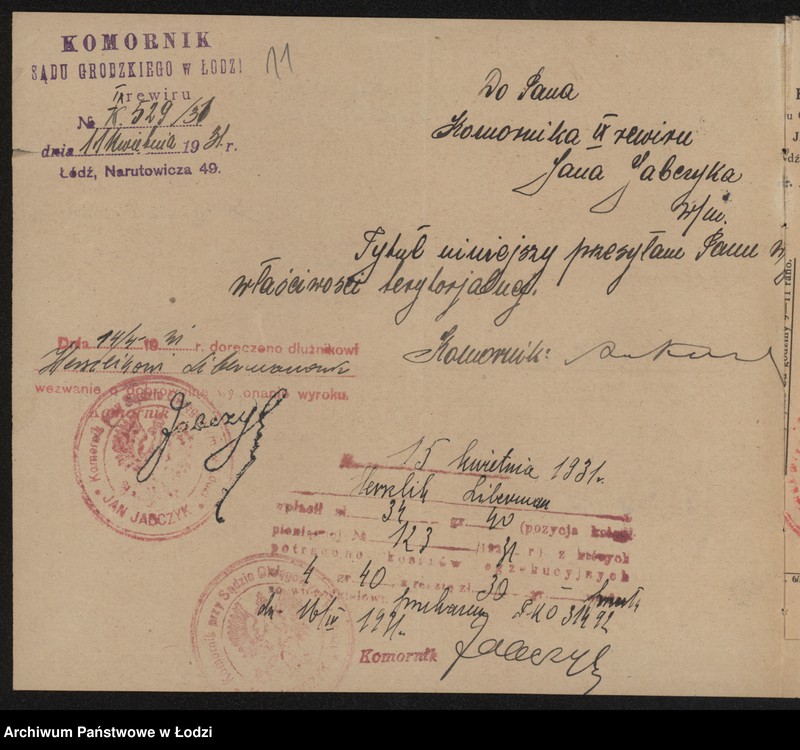 KOMORNIK
SĄDU GRODZKIEGO w ŁODZI
rewiru
№ K. 529/31
dnia 11 kwietnia 1931. r.
Łódź, Narutowicza 49.
11
Do Pana
Komornika IX rewiru
Jana Jabczyka
w/m.
Tytuł niniejszy przesyłam Panu w/g
właściwości terytorjalnej.
Komornik:
Dnia 14/4 19 31 r. doręczono dłużnikowi
Herszlikowi Libermanowi
wezwanie o dobrowolne wykonanie wyroku.
Komornik
Jabczyk
JAN JABCZYK
15 kwietnia 1931.
Herszlik Liberman
wpłacił zł. 34 gr. 40 (pozycja
pieniężnej № 123 /193 31 r) z których
potrącono kosztów egzekucyjnych
4 gr. 40 a resztę zł. 30 gr.
dn. 16/IV 1931. przekazano P.K.O 31492
Komornik Jabczyk
Komornik przy Sądzie Okręgo
Archiwum Państwowe w Łodzi